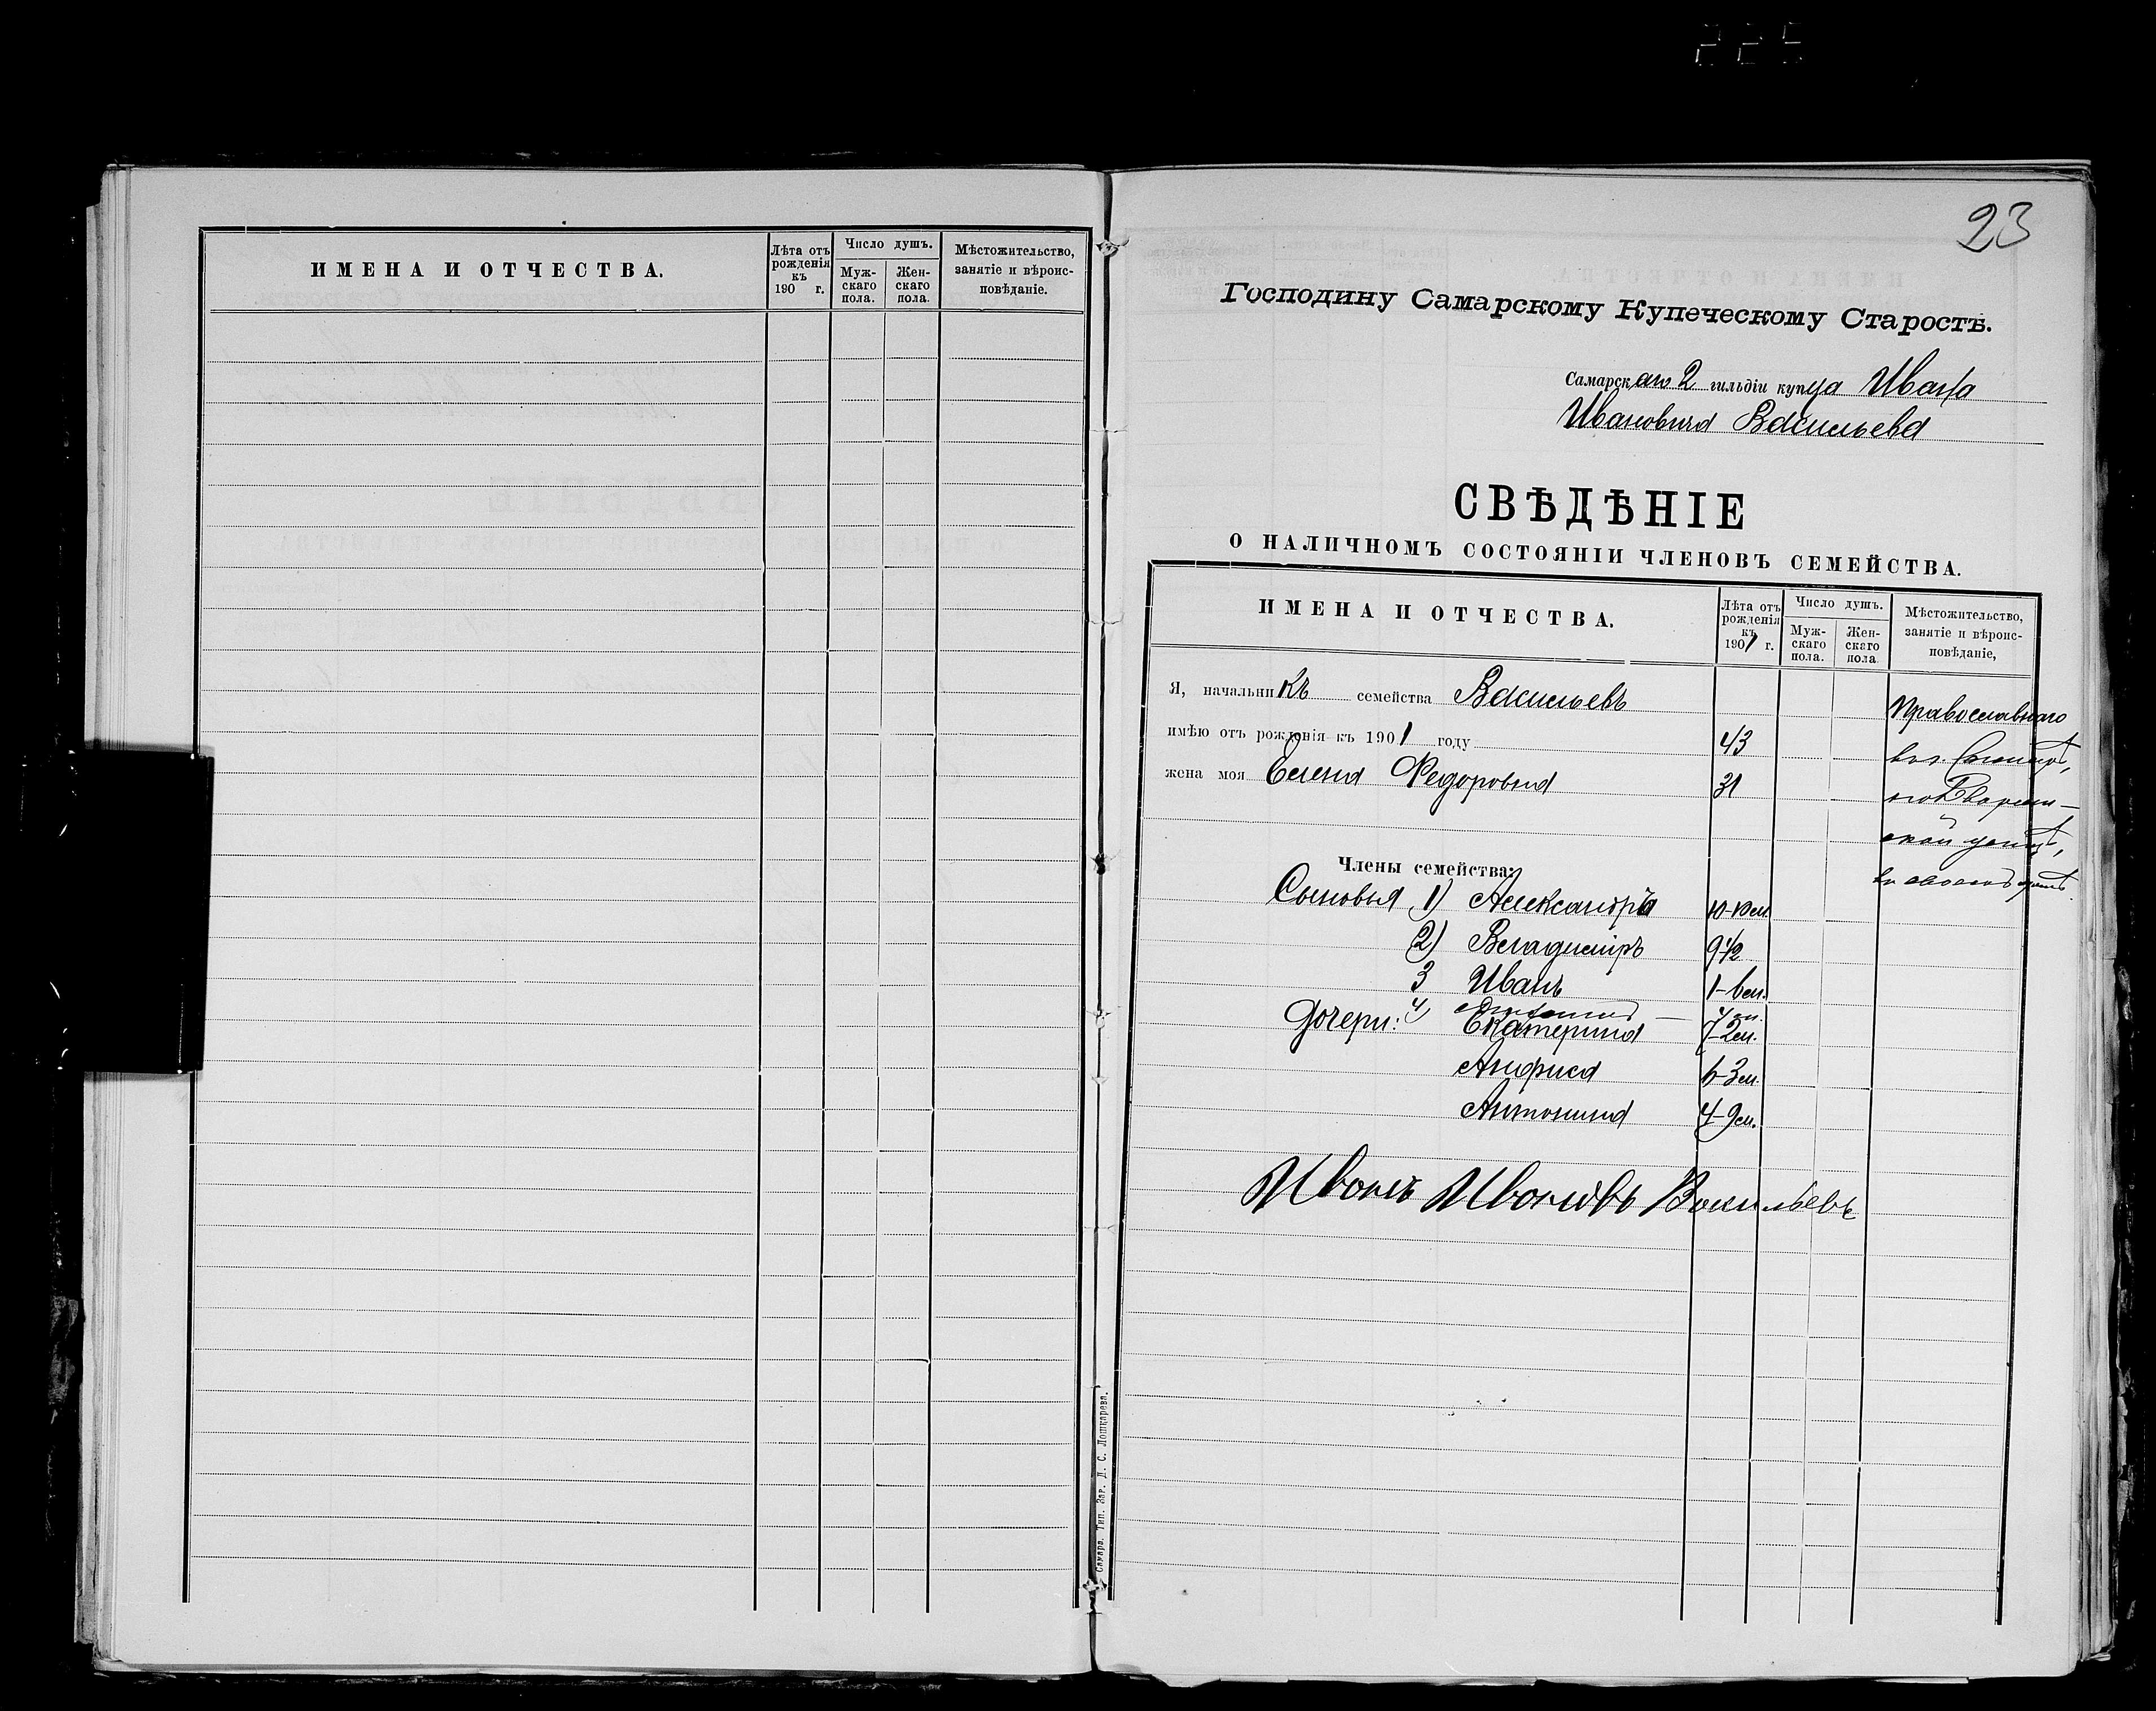 225
ИМЕНА И ОТЧЕСТВА.
Лѣта отъ рожденія къ 190 г.
Число душъ.
Муж-скаго пола.
Жен-скаго пола.
Мѣстожительство, занятіе и вѣроис-повѣданіе.
Самара. Тип. Зар. Д. С. Лошкарева.
23
Господину Самарскому Купеческому Старостѣ.
Самарскаго 2 гильдіи купца Ивана
Ивановича Васильева
СВѢДѢНІЕ
О НАЛИЧНОМЪ СОСТОЯНІИ ЧЛЕНОВЪ СЕМЕЙСТВА.
ИМЕНА И ОТЧЕСТВА.
Лѣта отъ рожденія къ 1901 г.
Число душъ.
Муж-скаго пола.
Жен-скаго пола.
Мѣстожительство, занятіе и вѣроис-повѣданіе,
Я, начальникъ семейства Васильевъ Православнаго
имѣю отъ рожденія къ 1901 году 43 въ г. Самарѣ,
жена моя Елена Федоровна 31 по Дворян-
ской улицѣ,
Члены семейства: въ своемъ домѣ
Сыновья 1) Александръ 10-10 м.
2) Владиміръ 9 1/2
3 Иванъ 1-6 м.
4)
Дочери: Екатерина 7-2 м.
Анфиса 6-3 м.
Антонина 4-9 м.
Иванъ Ивановъ Васильевъ